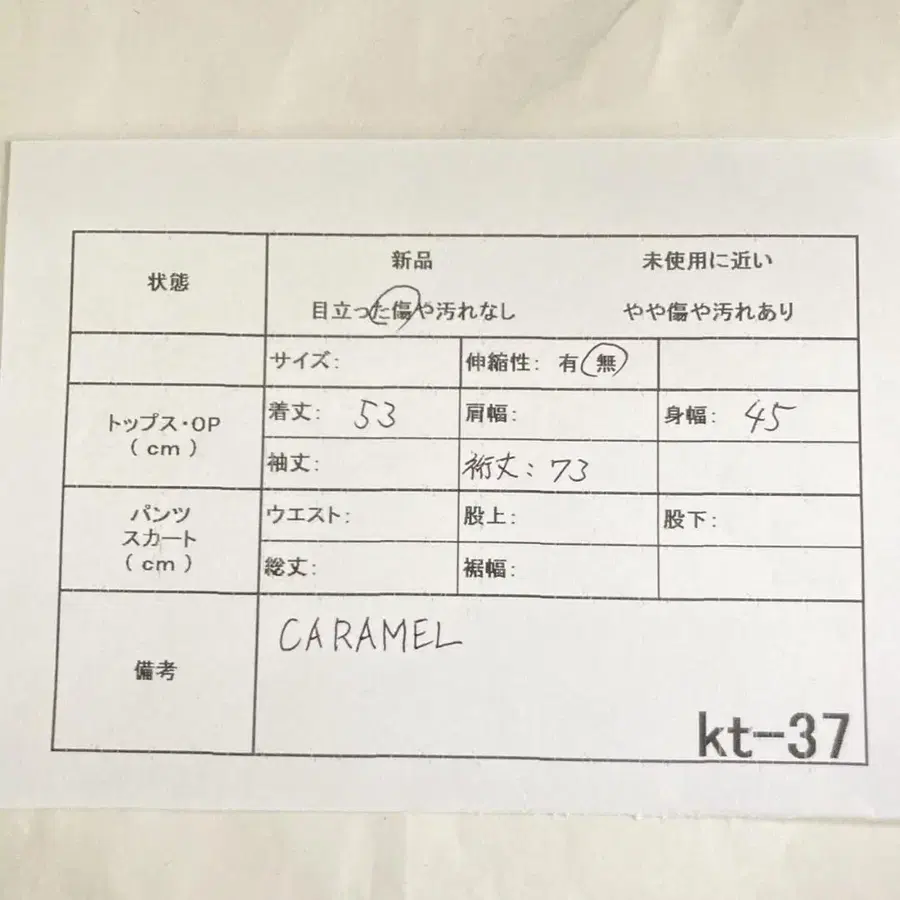 状態
新品 未使用に近い
目立った傷や汚れなし やや傷や汚れあり
サイズ: 伸縮性: 有 無
トップス・OP
(cm)
着丈: 53 肩幅: 身幅: 45
袖丈: 裄丈: 73
パンツ
スカート
(cm)
ウエスト: 股上: 股下:
総丈: 裾幅:
備考
CARAMEL
kt-37